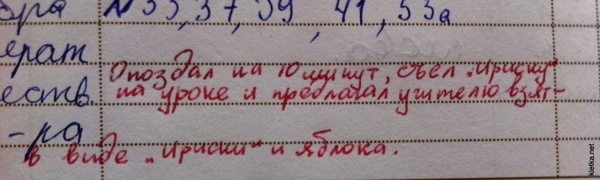 № 35, 37, 39, 41, 53а
Опоздал на 10 минут, съел „Ириску“
на уроке и предлагал учителю взят-
в виде „Ириски“ и яблока.
kletka.net